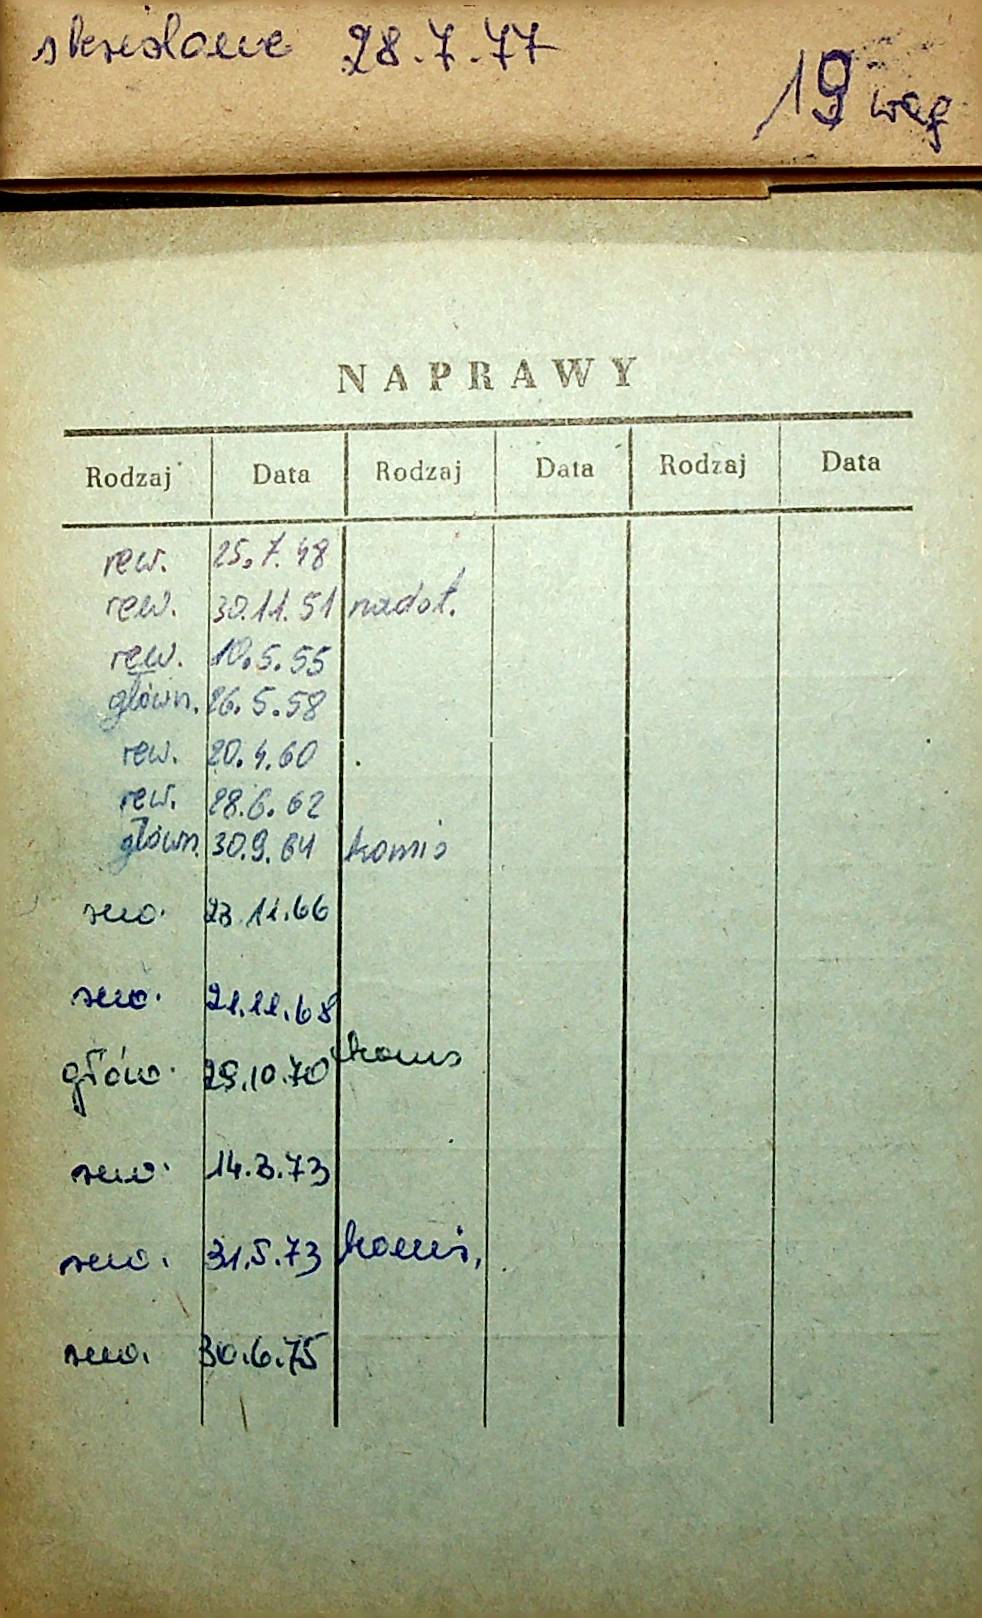 skreślone 28.7.77
19 wag
NAPRAWY
Rodzaj Data Rodzaj Data Rodzaj Data
rew. 25.7.48
rew. 30.11.51 nadot.
rew. 10.5.55
główn. 26.5.58
rew. 20.4.60
rew. 28.6.62
główn. 30.9.64 komis
rew. 23.11.66
rew. 21.11.68
głów. 29.10.70 komis
rew. 14.3.73
rew. 31.5.73 komis.
rew. 30.6.75